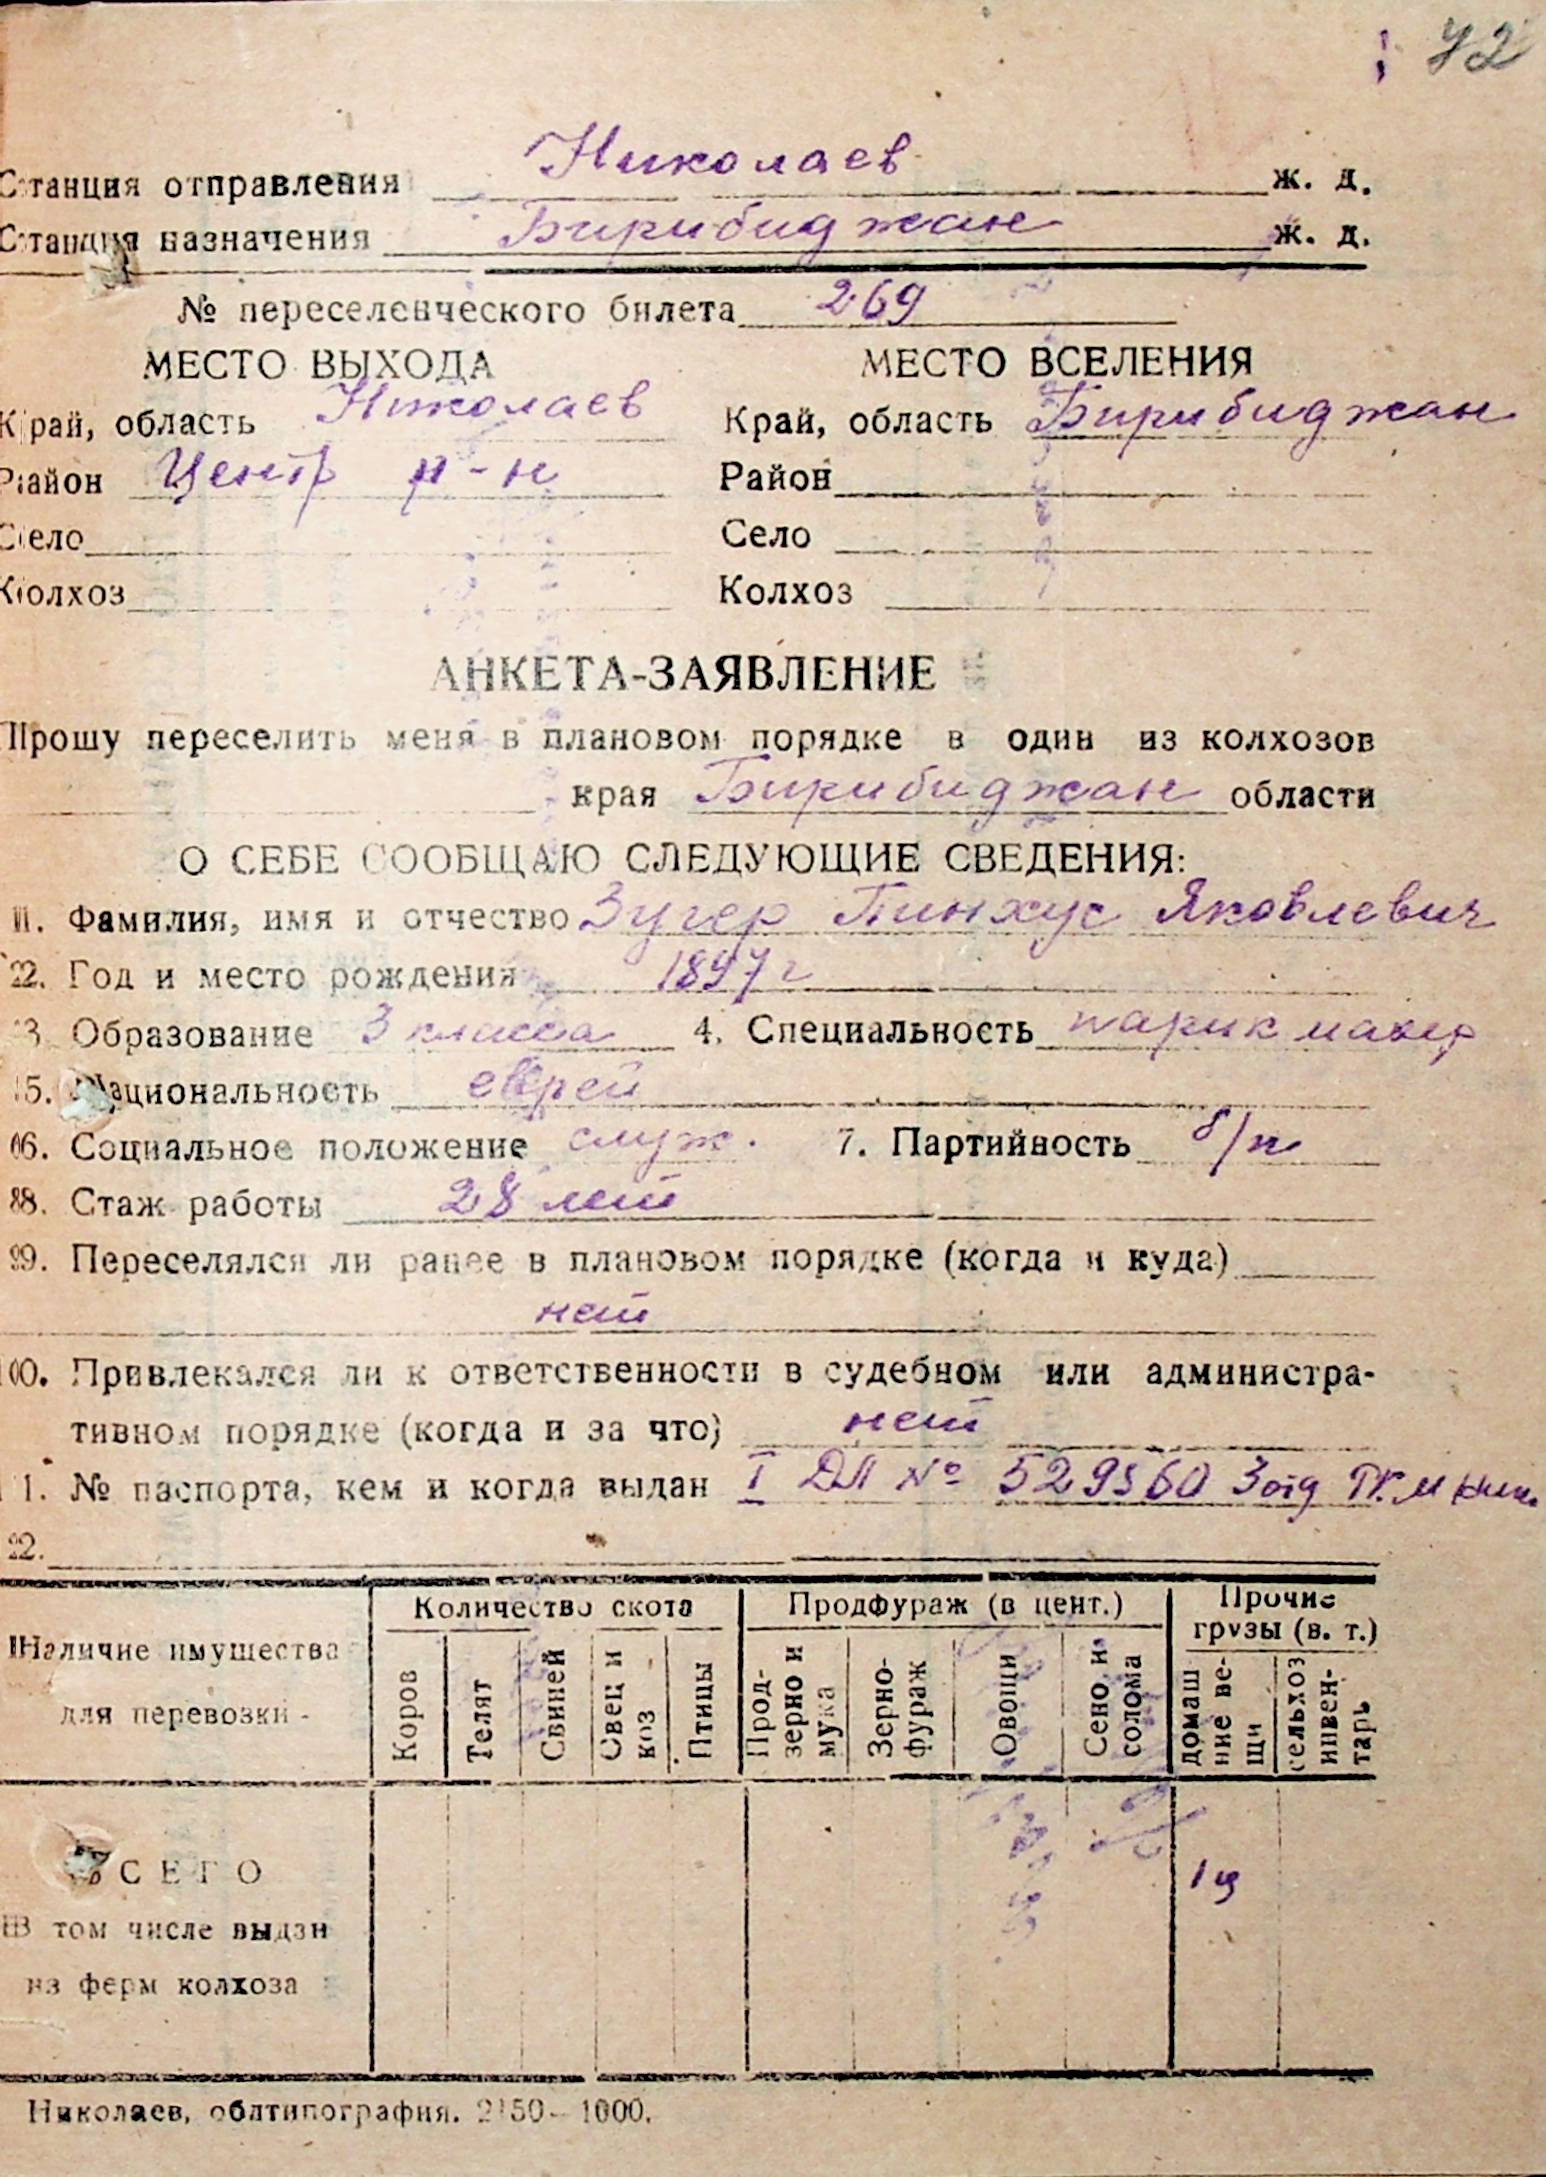 72
Станция отправления Николаев ж. д.
Станция назначения Бирибиджан ж. д.
№ переселенческого билета 269
МЕСТО ВЫХОДА МЕСТО ВСЕЛЕНИЯ
Край, область Николаев Край, область Бирибиджан
Район Центр р-н Район
Село Село
Колхоз Колхоз
АНКЕТА-ЗАЯВЛЕНИЕ
Прошу переселить меня в плановом порядке в один из колхозов
края Бирибиджан области
О СЕБЕ СООБЩАЮ СЛЕДУЮЩИЕ СВЕДЕНИЯ:
1. Фамилия, имя и отчество Зугер Пинхус Яковлевич
2. Год и место рождения 1897 г
3. Образование 3 класса 4. Специальность парикмахер
5. Национальность еврей
6. Социальное положение служ. 7. Партийность б/п
8. Стаж работы 28 лет
9. Переселялся ли ранее в плановом порядке (когда и куда)
нет
10. Привлекался ли к ответственности в судебном или администра-
тивном порядке (когда и за что) нет
11. № паспорта, кем и когда выдан I ДЛ № 529560 3 отд ГК.М
22.
Наличие имущества для перевозки - Количество скота Продфураж (в цент.) Прочие грузы (в. т.)
Коров Телят Свиней Овец и коз Птицы Прод-зерно и мука Зерно-фураж Овощи Сено и солома домашние ве-щи сельхоз инвен-тарь
ВСЕГО 1 ц
В том числе выдан
из ферм колхоза
Николаев, облтипография. 2150—1000.